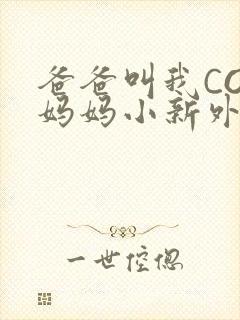 爸爸叫我CO
妈妈小新外
一世倥偬